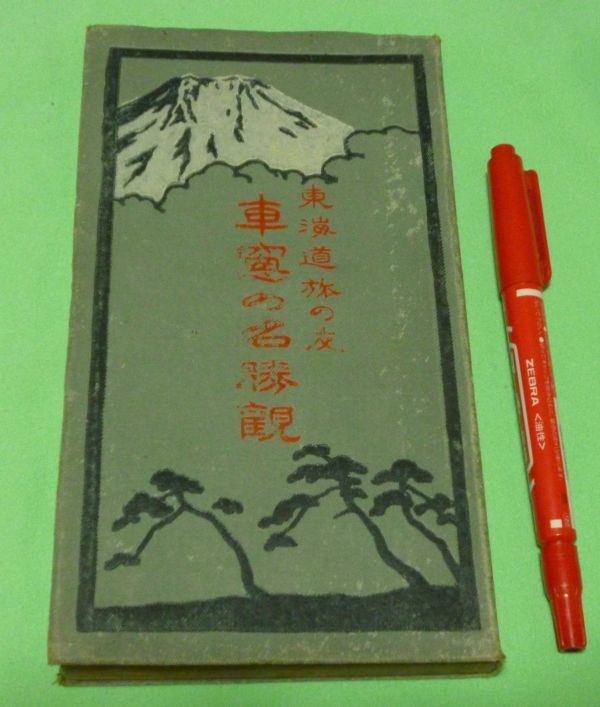 東海道旅の友
車窓の名勝観
ZEBRA
<油性>